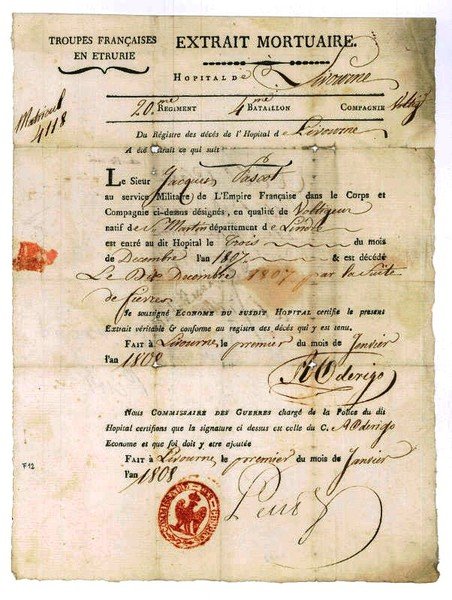 TROUPES FRANÇAISES
EN ETRURIE
EXTRAIT MORTUAIRE.
HOPITAL DE Livourne
Matricul
4118
20.me REGIMENT 4me BATAILLON COMPAGNIE Voltig
Du Régistre des décés de l'Hopital de Livourne
A été extrait ce qui suit
LE Sieur Jacques Pascot
au service Militaire de L'Empire Française dans le Corps et
Compagnie ci-dessus désignés, en qualité de Voltigeur
natif de S. Martin département de L'indre
est entré au dit Hopital le Trois du mois
de Decembre l'an 1807 & est décédé
Le Dix Decembre 1807 par la Suite
de fievres
Je soussigné ECONOME DU SUSDIT HOPITAL certifie le présent
Extrait véritable & conforme au registre des décés qui y est tenu.
FAIT à Livourne, le premier du mois de Janvier
l'an 1808
A Oderigo
NOUS COMMISSAIRE DES GUERRES chargé de la Police du dit
Hopital certifions que la signature ci dessus est celle du C. A Oderigo
Econome et que foi doit y être ajoutée
FAIT à Livourne, le premier du mois de Janvier
l'an 1808
F12